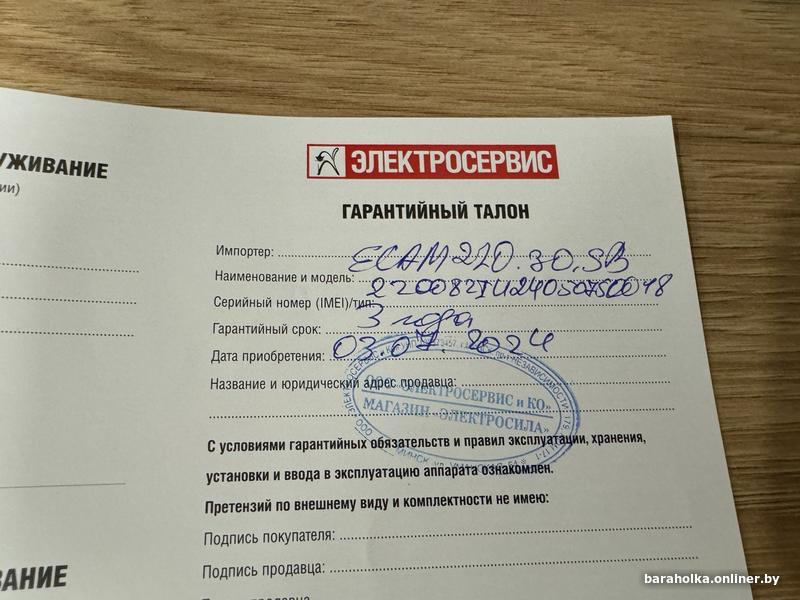 УЖИВАНИЕ
ии)
ЭЛЕКТРОСЕРВИС
ГАРАНТИЙНЫЙ ТАЛОН
Импортер:
ECAM220.30.SB
Наименование и модель:
Серийный номер (IMEI)/тип:
Гарантийный срок: 3 года
Дата приобретения: 03.07.2024
Название и юридический адрес продавца:
ООО «ЭЛЕКТРОСЕРВИС и КО»
МАГАЗИН «ЭЛЕКТРОСИЛА»
С условиями гарантийных обязательств и правил эксплуатации, хранения,
установки и ввода в эксплуатацию аппарата ознакомлен.
Претензий по внешнему виду и комплектности не имею:
Подпись покупателя:
Подпись продавца:
ВАНИЕ
baraholka.onliner.by